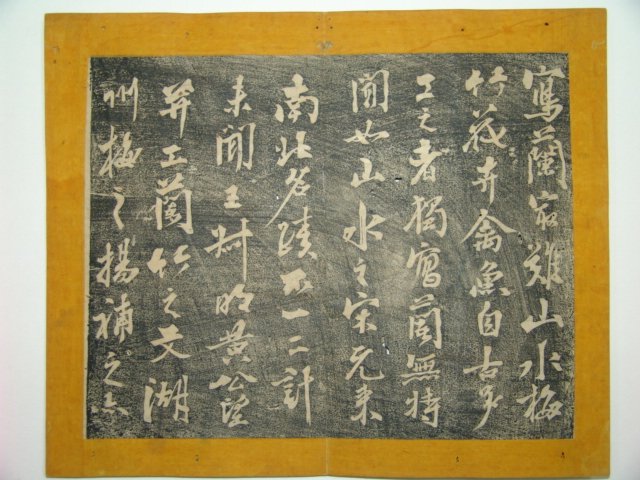 寫蘭最難山水梅
竹花卉禽魚自古多
工之者獨寫蘭無特
聞如山水之宋元來
南北名蹟不一二計
未聞王叔明黃公望
幷工蘭竹之文湖
州梅之揚補之亦